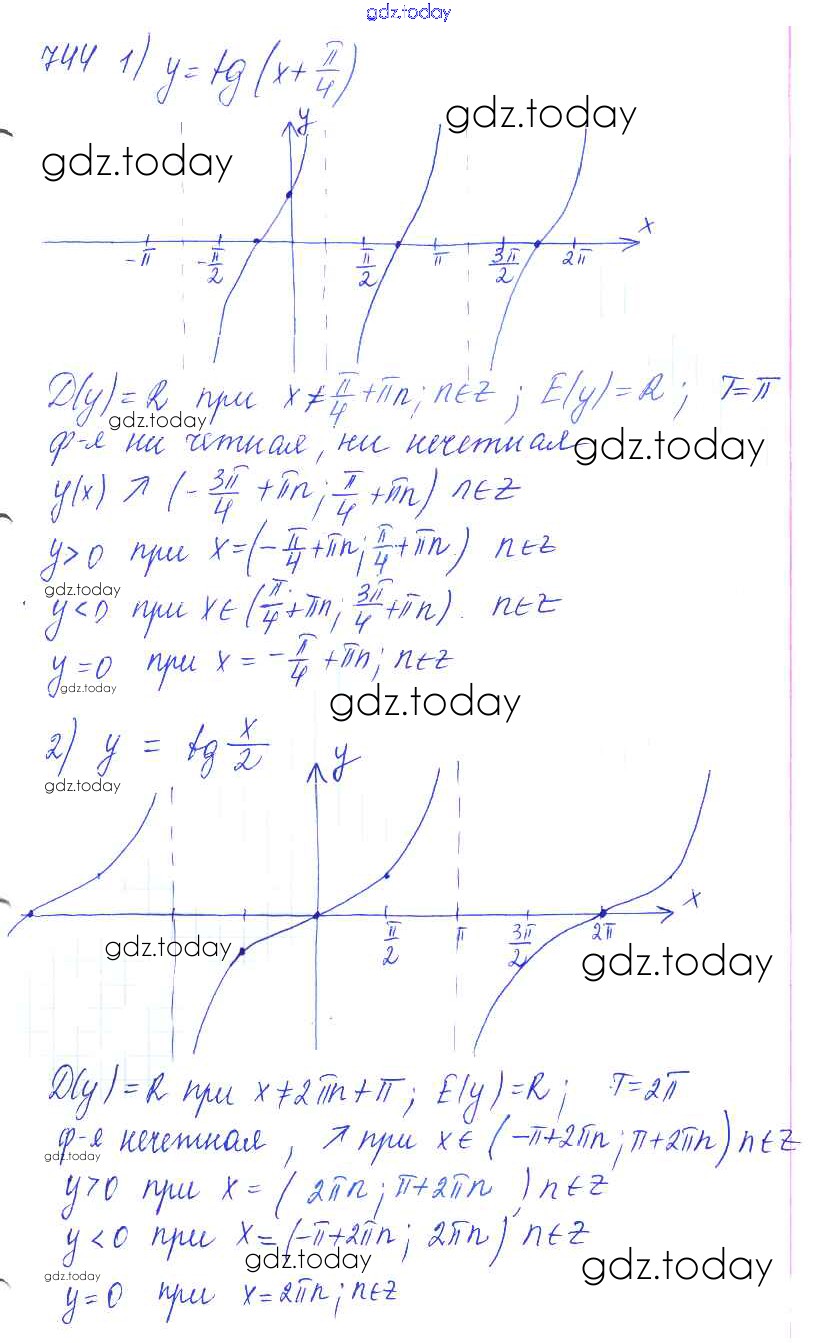 gdz.today
744 1) y = tg (x + π/4)
gdz.today
gdz.today
y
x
-π -π/2 π/2 π 3π/2 2π
D(y) = R при x ≠ π/4 + πn; n∈Z ; E(y) = R ; T = π
gdz.today
ф-я ни четная, ни нечетная
gdz.today
y(x) ↗ (-3π/4 + πn; π/4 + πn) n∈Z
y>0 при x = (-π/4 + πn; π/4 + πn) n∈Z
gdz.today
y<0 при x ∈ (π/4 + πn; 3π/4 + πn). n∈Z
y = 0 при x = -π/4 + πn; n∈Z
gdz.today
gdz.today
2) y = tg x/2
gdz.today
y
x
π/2 π 3π/2 2π
gdz.today
gdz.today
D(y) = R при x ≠ 2πn + π ; E(y) = R ; T = 2π
ф-я нечетная , ↗ при x ∈ (-π + 2πn ; π + 2πn) n∈Z
gdz.today
y>0 при x = ( 2πn ; π + 2πn ) n∈Z
y<0 при x = (-π + 2πn ; 2πn) n∈Z
gdz.today
gdz.today
gdz.today
y = 0 при x = 2πn ; n∈Z